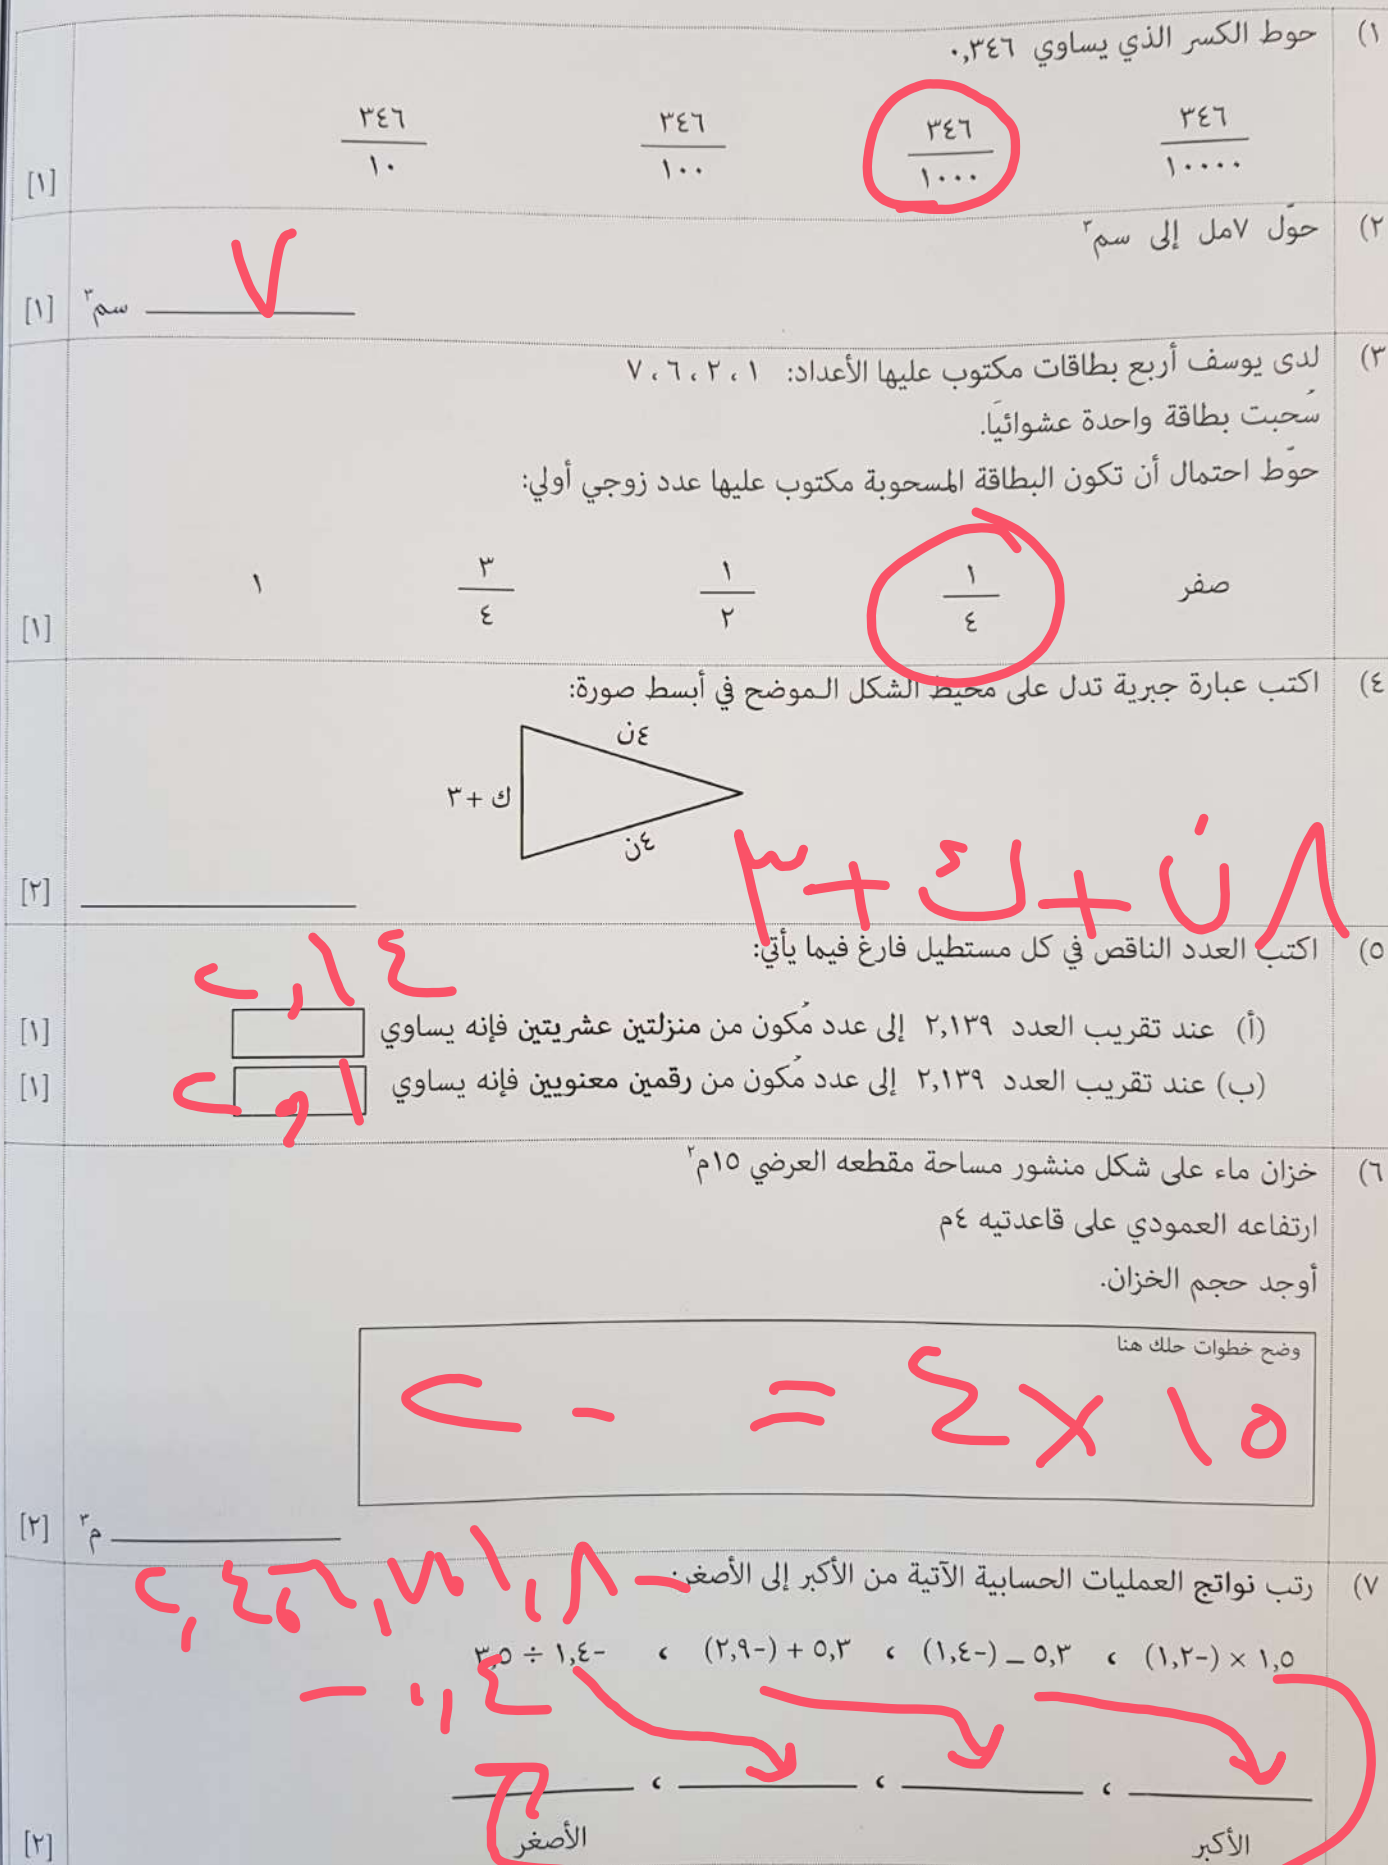 ١) حوط الكسر الذي يساوي ٠,٣٤٦
٣٤٦/١٠٠٠٠ ٣٤٦/١٠٠٠ ٣٤٦/١٠٠ ٣٤٦/١٠
[١]
٢) حوّل ٧مل إلى سم٣
٧ سم٣ [١]
٣) لدى يوسف أربع بطاقات مكتوب عليها الأعداد: ١ ، ٢ ، ٦ ، ٧
سُحبت بطاقة واحدة عشوائيًا.
حوّط احتمال أن تكون البطاقة المسحوبة مكتوب عليها عدد زوجي أولي:
صفر ١/٤ ١/٢ ٣/٤ ١
[١]
٤) اكتب عبارة جبرية تدل على محيط الشكل الموضح في أبسط صورة:
٤ن
ك + ٣
٤ن
٨ن + ك + ٣
[٢]
٥) اكتب العدد الناقص في كل مستطيل فارغ فيما يأتي:
٢,١٤
(أ) عند تقريب العدد ٢,١٣٩ إلى عدد مُكون من منزلتين عشريتين فإنه يساوي [١]
(ب) عند تقريب العدد ٢,١٣٩ إلى عدد مُكون من رقمين معنويين فإنه يساوي ٢,١ [١]
٦) خزان ماء على شكل منشور مساحة مقطعه العرضي ١٥م٢
ارتفاعه العمودي على قاعدتيه ٤م
أوجد حجم الخزان.
وضح خطوات حلك هنا
١٥ × ٤ =
م٣ [٢]
٧) رتب نواتج العمليات الحسابية الآتية من الأكبر إلى الأصغر:
١,٥ × (-١,٢) ، ٥,٣ – (-١,٤) ، ٥,٣ + (-٢,٩) ، -١,٤ ÷ ٣,٥
-٠,٤
، ، ،
الأكبر الأصغر
[٢]